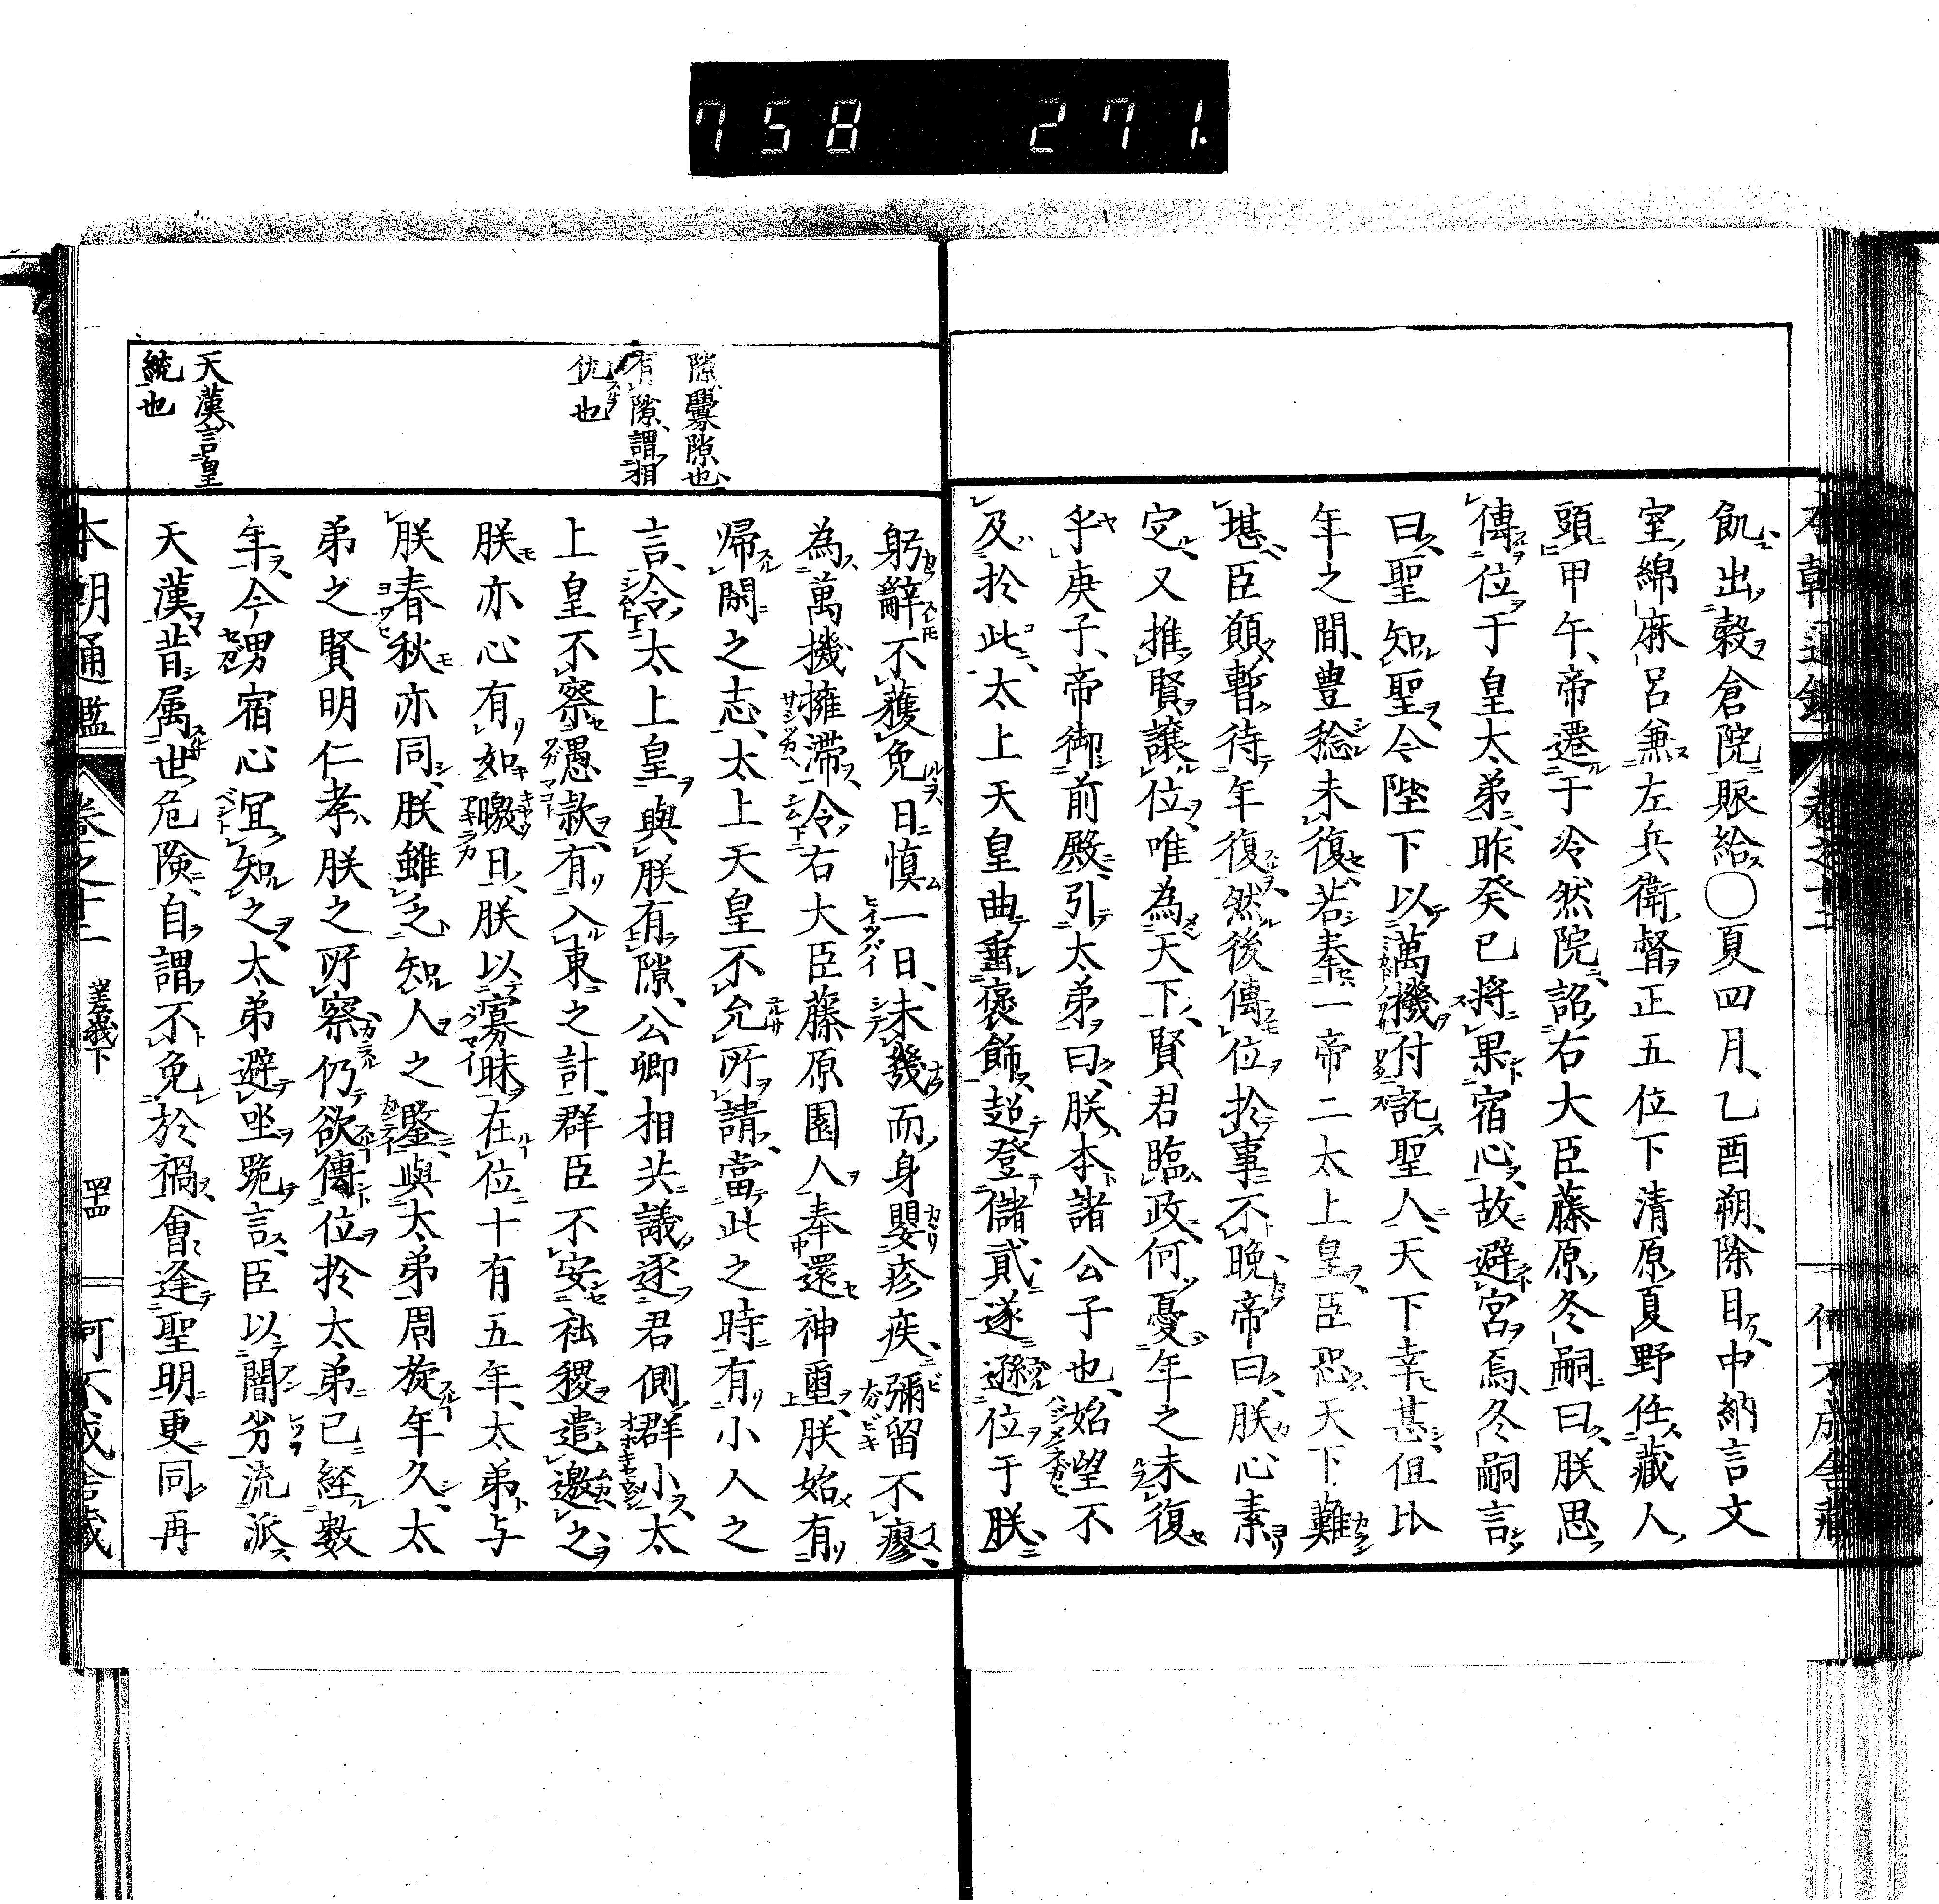 758 271.
飢出穀倉院賑給〇夏四月乙酉朔除目中納言文
室綿麻呂兼左兵衛督正五位下清原夏野任藏人
頭甲午帝遷于冷然院詔右大臣藤原冬嗣曰朕思
傳位于皇太弟昨癸巳將果宿心故避宮焉冬嗣言
曰聖知聖今陛下以萬機付託聖人天下幸甚但比
年之間豊稔未復若奉一帝二太上皇臣恐天下難
堪臣願暫待年復然後傳位於事不晩帝曰朕心素
定又推賢讓位唯為天下賢君臨政何憂年之未復
乎庚子帝御前殿引太弟曰朕本諸公子也始望不
及於此太上天皇曲垂褒飾超登儲貳遂遜位于朕
躬辭不獲免日慎一日未幾而身嬰疹疾彌留不瘳
為萬機擁滞令右大臣藤原園人奉還神璽朕始有
帰閑之志太上天皇不允所請當此之時有小人之
言令太上皇與朕有隙公卿相共議逐君側群小太
上皇不察愚款有入東之計群臣不安社稷遣邀之
朕亦心有如曒日朕以寡昧在位十有五年太弟与
朕春秋亦同朕雖乏知人之鑒與太弟周旋年久太
弟之賢明仁孝朕之所察仍欲傳位於太弟已経數
年今甥宿心冝知之太弟避坐跪言臣以闇劣流派
天漢昔属世危険自謂不免於禍會逢聖明更同再
隙釁隙也
有隙謂相
仇也
天漢言皇
統也
本朝通鑑
卷之十二
嵯峨下
四十四
何不成舎藏